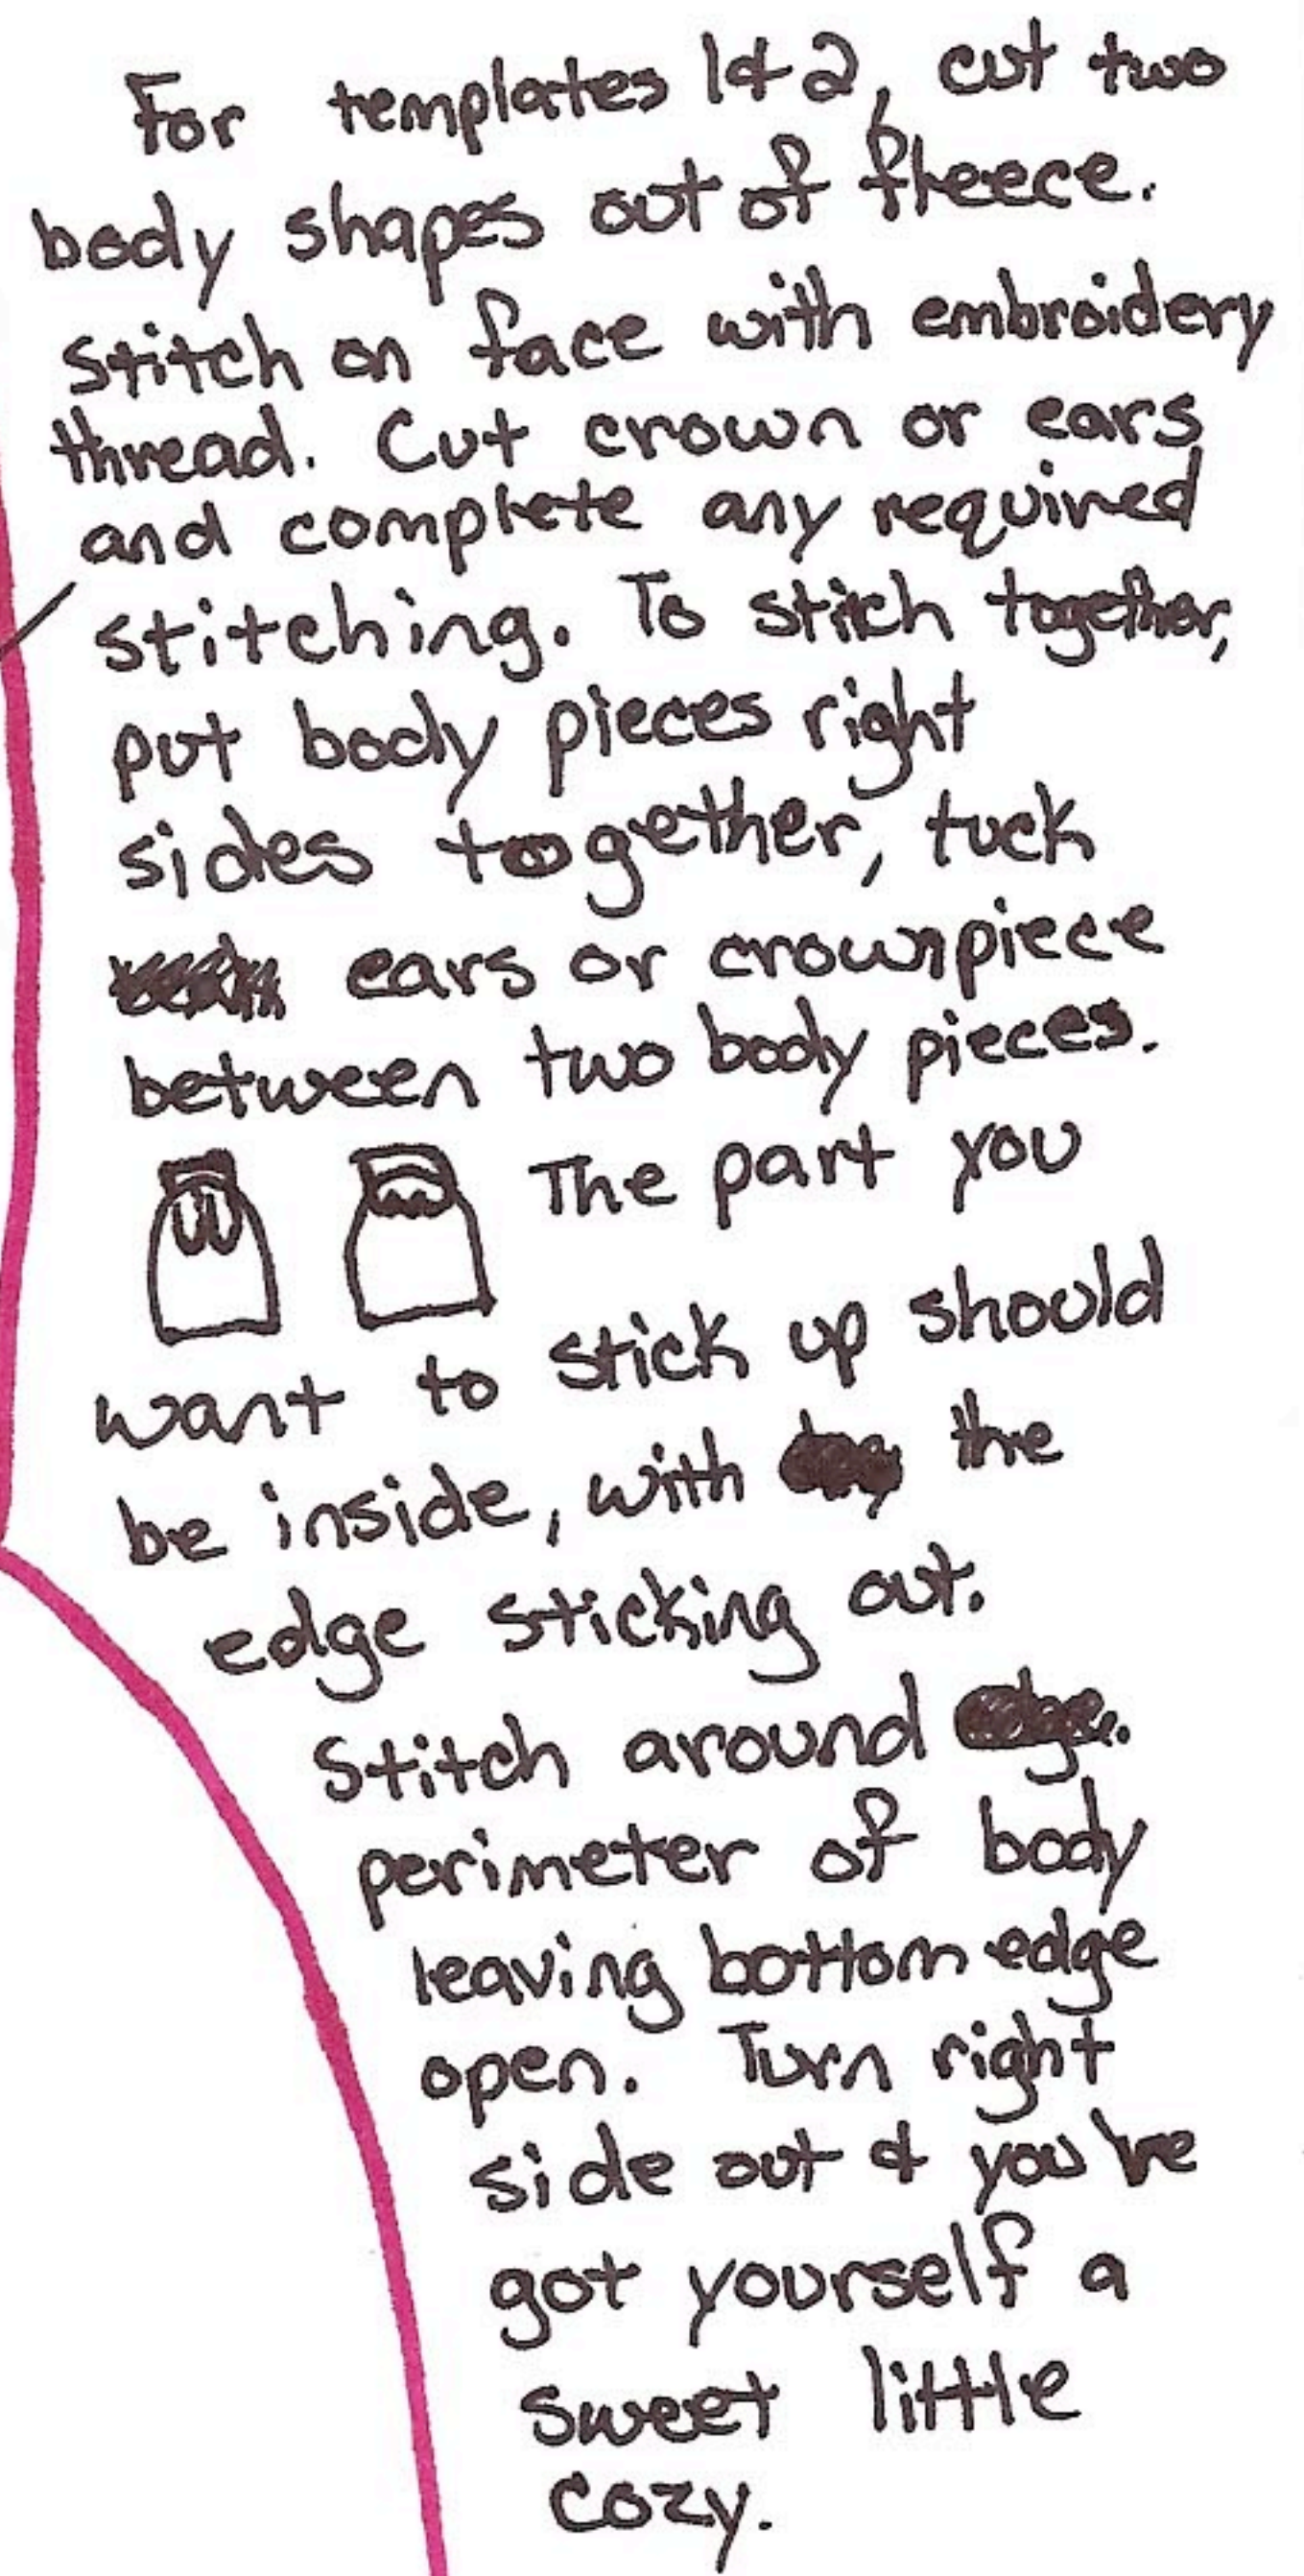 For templates 1&2, cut two
body shapes out of fleece.
Stitch on face with embroidery
thread. Cut crown or ears
and complete any required
stitching. To stich together,
put body pieces right
sides together, tuck
ears or crown piece
between two body pieces.
The part you
want to stick up should
be inside, with the
edge sticking out.
Stitch around
perimeter of body
leaving bottom edge
open. Turn right
side out & you've
got yourself a
sweet little
cozy.